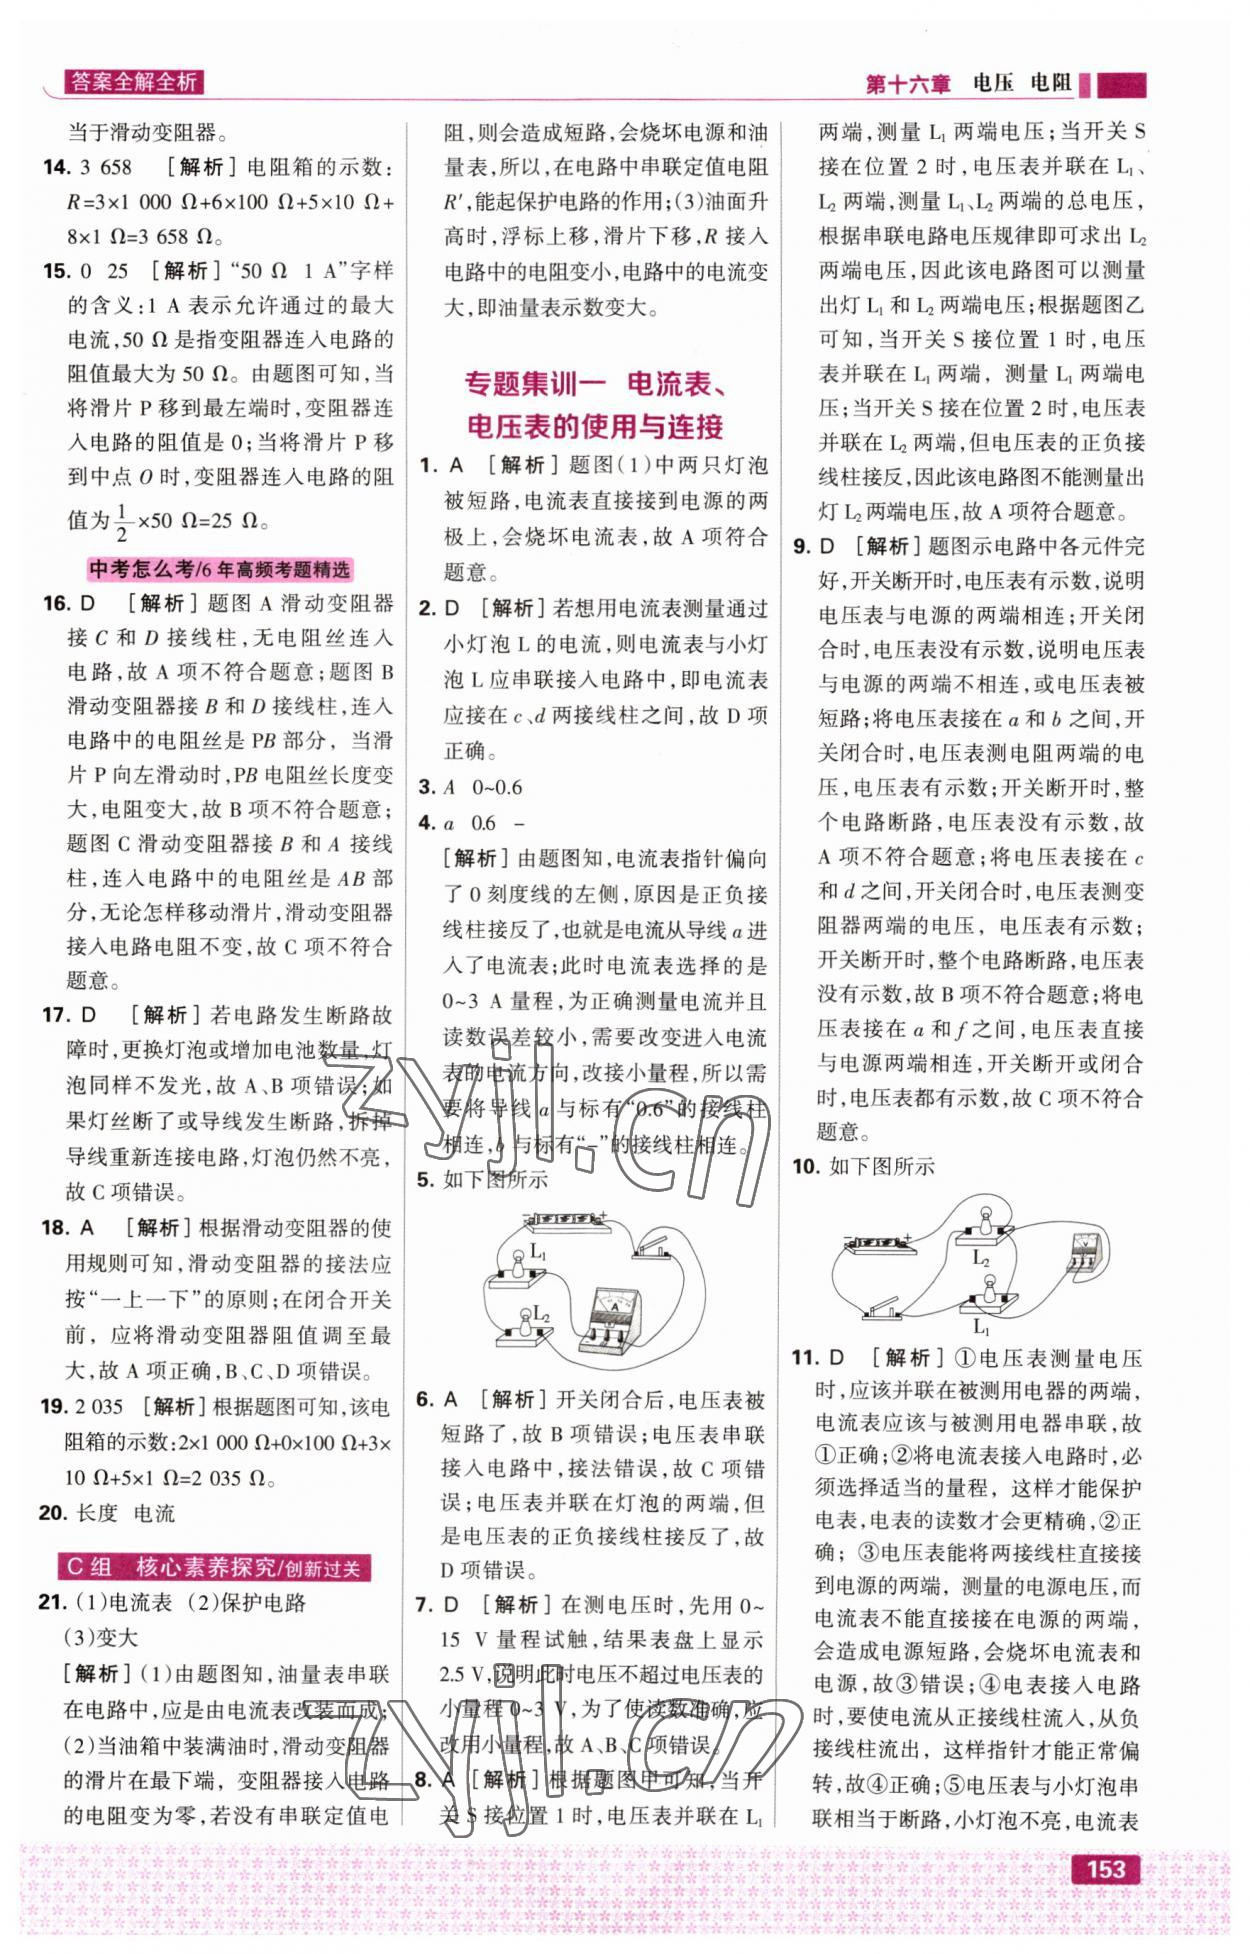 答案全解全析
第十六章 电压 电阻
当于滑动变阻器。
14. 3 658 [解析]电阻箱的示数:
R=3×1 000 Ω+6×100 Ω+5×10 Ω+
8×1 Ω=3 658 Ω。
15. 0 25 [解析]“50 Ω 1 A”字样
的含义:1 A 表示允许通过的最大
电流,50 Ω 是指变阻器连入电路的
阻值最大为 50 Ω。由题图可知,当
将滑片 P 移到最左端时,变阻器连
入电路的阻值是 0;当将滑片 P 移
到中点 O 时,变阻器连入电路的阻
值为1/2×50 Ω=25 Ω。
中考怎么考/6 年高频考题精选
16. D [解析]题图 A 滑动变阻器
接 C 和 D 接线柱,无电阻丝连入
电路,故 A 项不符合题意;题图 B
滑动变阻器接 B 和 D 接线柱,连入
电路中的电阻丝是 PB 部分, 当滑
片 P 向左滑动时,PB 电阻丝长度变
大,电阻变大,故 B 项不符合题意;
题图 C 滑动变阻器接 B 和 A 接线
柱,连入电路中的电阻丝是 AB 部
分,无论怎样移动滑片,滑动变阻器
接入电路电阻不变,故 C 项不符合
题意。
17. D [解析]若电路发生断路故
障时,更换灯泡或增加电池数量,灯
泡同样不发光,故 A、B 项错误;如
果灯丝断了或导线发生断路,拆掉
导线重新连接电路,灯泡仍然不亮,
故 C 项错误。
18. A [解析]根据滑动变阻器的使
用规则可知,滑动变阻器的接法应
按“一上一下”的原则;在闭合开关
前, 应将滑动变阻器阻值调至最
大,故 A 项正确,B、C、D 项错误。
19. 2 035 [解析]根据题图可知,该电
阻箱的示数:2×1 000 Ω+0×100 Ω+3×
10 Ω+5×1 Ω=2 035 Ω。
20. 长度 电流
C 组 核心素养探究/创新过关
21. (1)电流表 (2)保护电路
(3)变大
[解析](1)由题图知,油量表串联
在电路中,应是由电流表改装而成;
(2)当油箱中装满油时,滑动变阻器
的滑片在最下端, 变阻器接入电路
的电阻变为零,若没有串联定值电
阻,则会造成短路,会烧坏电源和油
量表,所以,在电路中串联定值电阻
R′,能起保护电路的作用;(3)油面升
高时,浮标上移,滑片下移,R 接入
电路中的电阻变小,电路中的电流变
大,即油量表示数变大。
专题集训一 电流表、
电压表的使用与连接
1. A [解析]题图(1)中两只灯泡
被短路,电流表直接接到电源的两
极上,会烧坏电流表,故 A 项符合
题意。
2. D [解析]若想用电流表测量通过
小灯泡 L 的电流,则电流表与小灯
泡 L 应串联接入电路中,即电流表
应接在 c、d 两接线柱之间,故 D 项
正确。
3. A 0~0.6
4. a 0.6 −
[解析]由题图知,电流表指针偏向
了 0 刻度线的左侧,原因是正负接
线柱接反了,也就是电流从导线 a 进
入了电流表;此时电流表选择的是
0~3 A 量程,为正确测量电流并且
读数误差较小,需要改变进入电流
表的电流方向,改接小量程,所以需
要将导线 a 与标有“0.6”的接线柱
相连,b 与标有“−”的接线柱相连。
5. 如下图所示
− +
L₁
L₂
A
6. A [解析]开关闭合后,电压表被
短路了,故 B 项错误;电压表串联
接入电路中,接法错误,故 C 项错
误;电压表并联在灯泡的两端,但
是电压表的正负接线柱接反了,故
D 项错误。
7. D [解析]在测电压时,先用 0~
15 V 量程试触,结果表盘上显示
2.5 V,说明此时电压不超过电压表的
小量程 0~3 V,为了使读数准确,应
改用小量程,故 A、B、C 项错误。
8. A [解析]根据题图甲可知,当开
关 S 接位置 1 时,电压表并联在 L₁
两端,测量 L₁ 两端电压;当开关 S
接在位置 2 时,电压表并联在 L₁、
L₂ 两端,测量 L₁、L₂ 两端的总电压,
根据串联电路电压规律即可求出 L₂
两端电压,因此该电路图可以测量
出灯 L₁ 和 L₂ 两端电压;根据题图乙
可知,当开关 S 接位置 1 时,电压
表并联在 L₁ 两端, 测量 L₁ 两端电
压;当开关 S 接在位置 2 时,电压表
并联在 L₂ 两端,但电压表的正负接
线柱接反,因此该电路图不能测量出
灯 L₂两端电压,故 A 项符合题意。
9. D [解析]题图示电路中各元件完
好,开关断开时,电压表有示数,说明
电压表与电源的两端相连;开关闭
合时,电压表没有示数,说明电压表
与电源的两端不相连,或电压表被
短路;将电压表接在 a 和 b 之间,开
关闭合时,电压表测电阻两端的电
压,电压表有示数;开关断开时,整
个电路断路,电压表没有示数,故
A 项不符合题意;将电压表接在 c
和 d 之间,开关闭合时,电压表测变
阻器两端的电压, 电压表有示数;
开关断开时,整个电路断路,电压表
没有示数,故 B 项不符合题意;将电
压表接在 a 和 f 之间,电压表直接
与电源两端相连,开关断开或闭合
时,电压表都有示数,故 C 项不符合
题意。
10. 如下图所示
− +
L₂
L₁
V
11. D [解析]①电压表测量电压
时,应该并联在被测用电器的两端,
电流表应该与被测用电器串联,故
①正确;②将电流表接入电路时,必
须选择适当的量程, 这样才能保护
电表,电表的读数才会更精确,②正
确; ③电压表能将两接线柱直接接
到电源的两端, 测量的电源电压,而
电流表不能直接接在电源的两端,
会造成电源短路,会烧坏电流表和
电源,故③错误;④电表接入电路
时,要使电流从正接线柱流入,从负
接线柱流出, 这样指针才能正常偏
转,故④正确;⑤电压表与小灯泡串
联相当于断路,小灯泡不亮,电流表
zyjl.cn
zyjl.cn
153